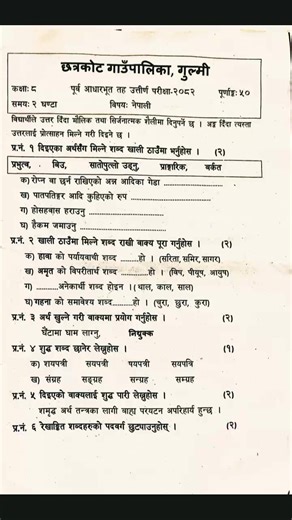 छत्रकोट गाउँपालिका, गुल्मी
कक्षाः ८ पूर्व आधारभूत तह उत्तीर्ण परीक्षा-२०८२ पूर्णाङ्कः ५०
समयः २ घण्टा विषयः नेपाली
विद्यार्थीले उत्तर दिँदा मौलिक तथा सिर्जनात्मक शैलीमा दिनुपर्ने छ । अङ्क दिँदा त्यस्ता
उत्तरलाई प्रोत्साहन मिल्ने गरी दिइने छ ।
प्र.नं. १ दिइएका अर्थसँग मिल्ने शब्द खाली ठाउँमा भर्नुहोस् । (२)
प्रभुत्व, बिउ, सातोपुत्लो उड्नु, प्राङ्गारिक, बर्कत
क) रोप्न वा छर्न राखिएको अन्न आदिका गेडा ....................
ख) पातपतिङ्गर आदि कुहिएको रुप ....................
ग) होसहवास हराउनु ....................
घ) हैकम जमाउनु ....................
प्र.नं. २ खाली ठाउँमा मिल्ने शब्द राखी वाक्य पूरा गर्नुहोस । (२)
क) हावा को पर्यायवाची शब्द ..........हो । (सरिता, समिर, सागर)
ख) अमृत को विपरीतार्थ शब्द ..........हो । (विष, पीयूष, आयुष)
ग) ..........अनेकार्थी शब्द होइन । ( थाल, काल, साल)
घ) गहना को समावेश्य शब्द..........हो । (चुरा, छुरा, कुरा)
प्र.नं. ३ अर्थ खुल्ने गरी वाक्यमा प्रयोग गर्नुहोस् । (२)
घैँटामा घाम लाग्नु, नियुक्क
प्र.नं. ४ शुद्ध शब्द छानेर लेख्नुहोस । (१)
क) शयपत्री सयपत्री पयपत्री सयपत्रि
ख) संग्रह सङ्ग्रह सन्ग्रह सम्ग्रह
प्र.नं. ५ दिइएको वाक्यलाई शुद्ध पारी लेख्नुहोस । (२)
शमृद्ध अर्थ तन्त्रका लागी वाह्य परयटन अपरिहार्य हुन्छ ।
प्र.नं. ६ रेखाङ्कित शब्दहरुको पदवर्ग छुट्याउनुहोस् । (२)